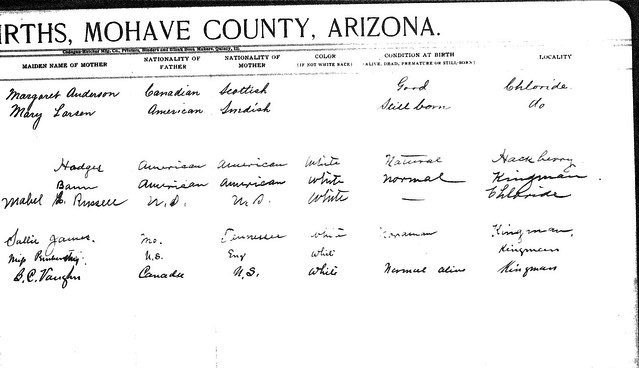 IRTHS, MOHAVE COUNTY, ARIZONA.
MAIDEN NAME OF MOTHER NATIONALITY OF FATHER NATIONALITY OF MOTHER COLOR (IF NOT WHITE RACE) CONDITION AT BIRTH (ALIVE, DEAD, PREMATURE OR STILL-BORN) LOCALITY
Margaret Anderson Canadian Scottish Good Chloride
Mary Larson American Swedish Still born do
Hodges American American White Natural Hackberry
American American White Normal Kingman
Mabel Russell U.S. U.S. White — Chloride
Sallie James. Mo. Tennessee White Kingman,
Miss U.S. Eng White Kingman
B.C. Vaughn Canada U.S. White Normal alive Kingman